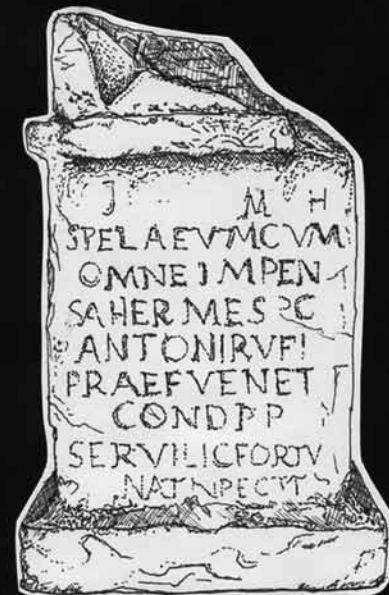 J M H
SPELAEVMCVM
OMNEIMPEN
SAHERMES C
ANTONIRVFI
PRAEFVENET
CONDPP
SERVILICFORTV
NAT